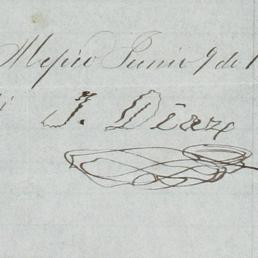 Mejico Junio 9 de 1
J. Diaz